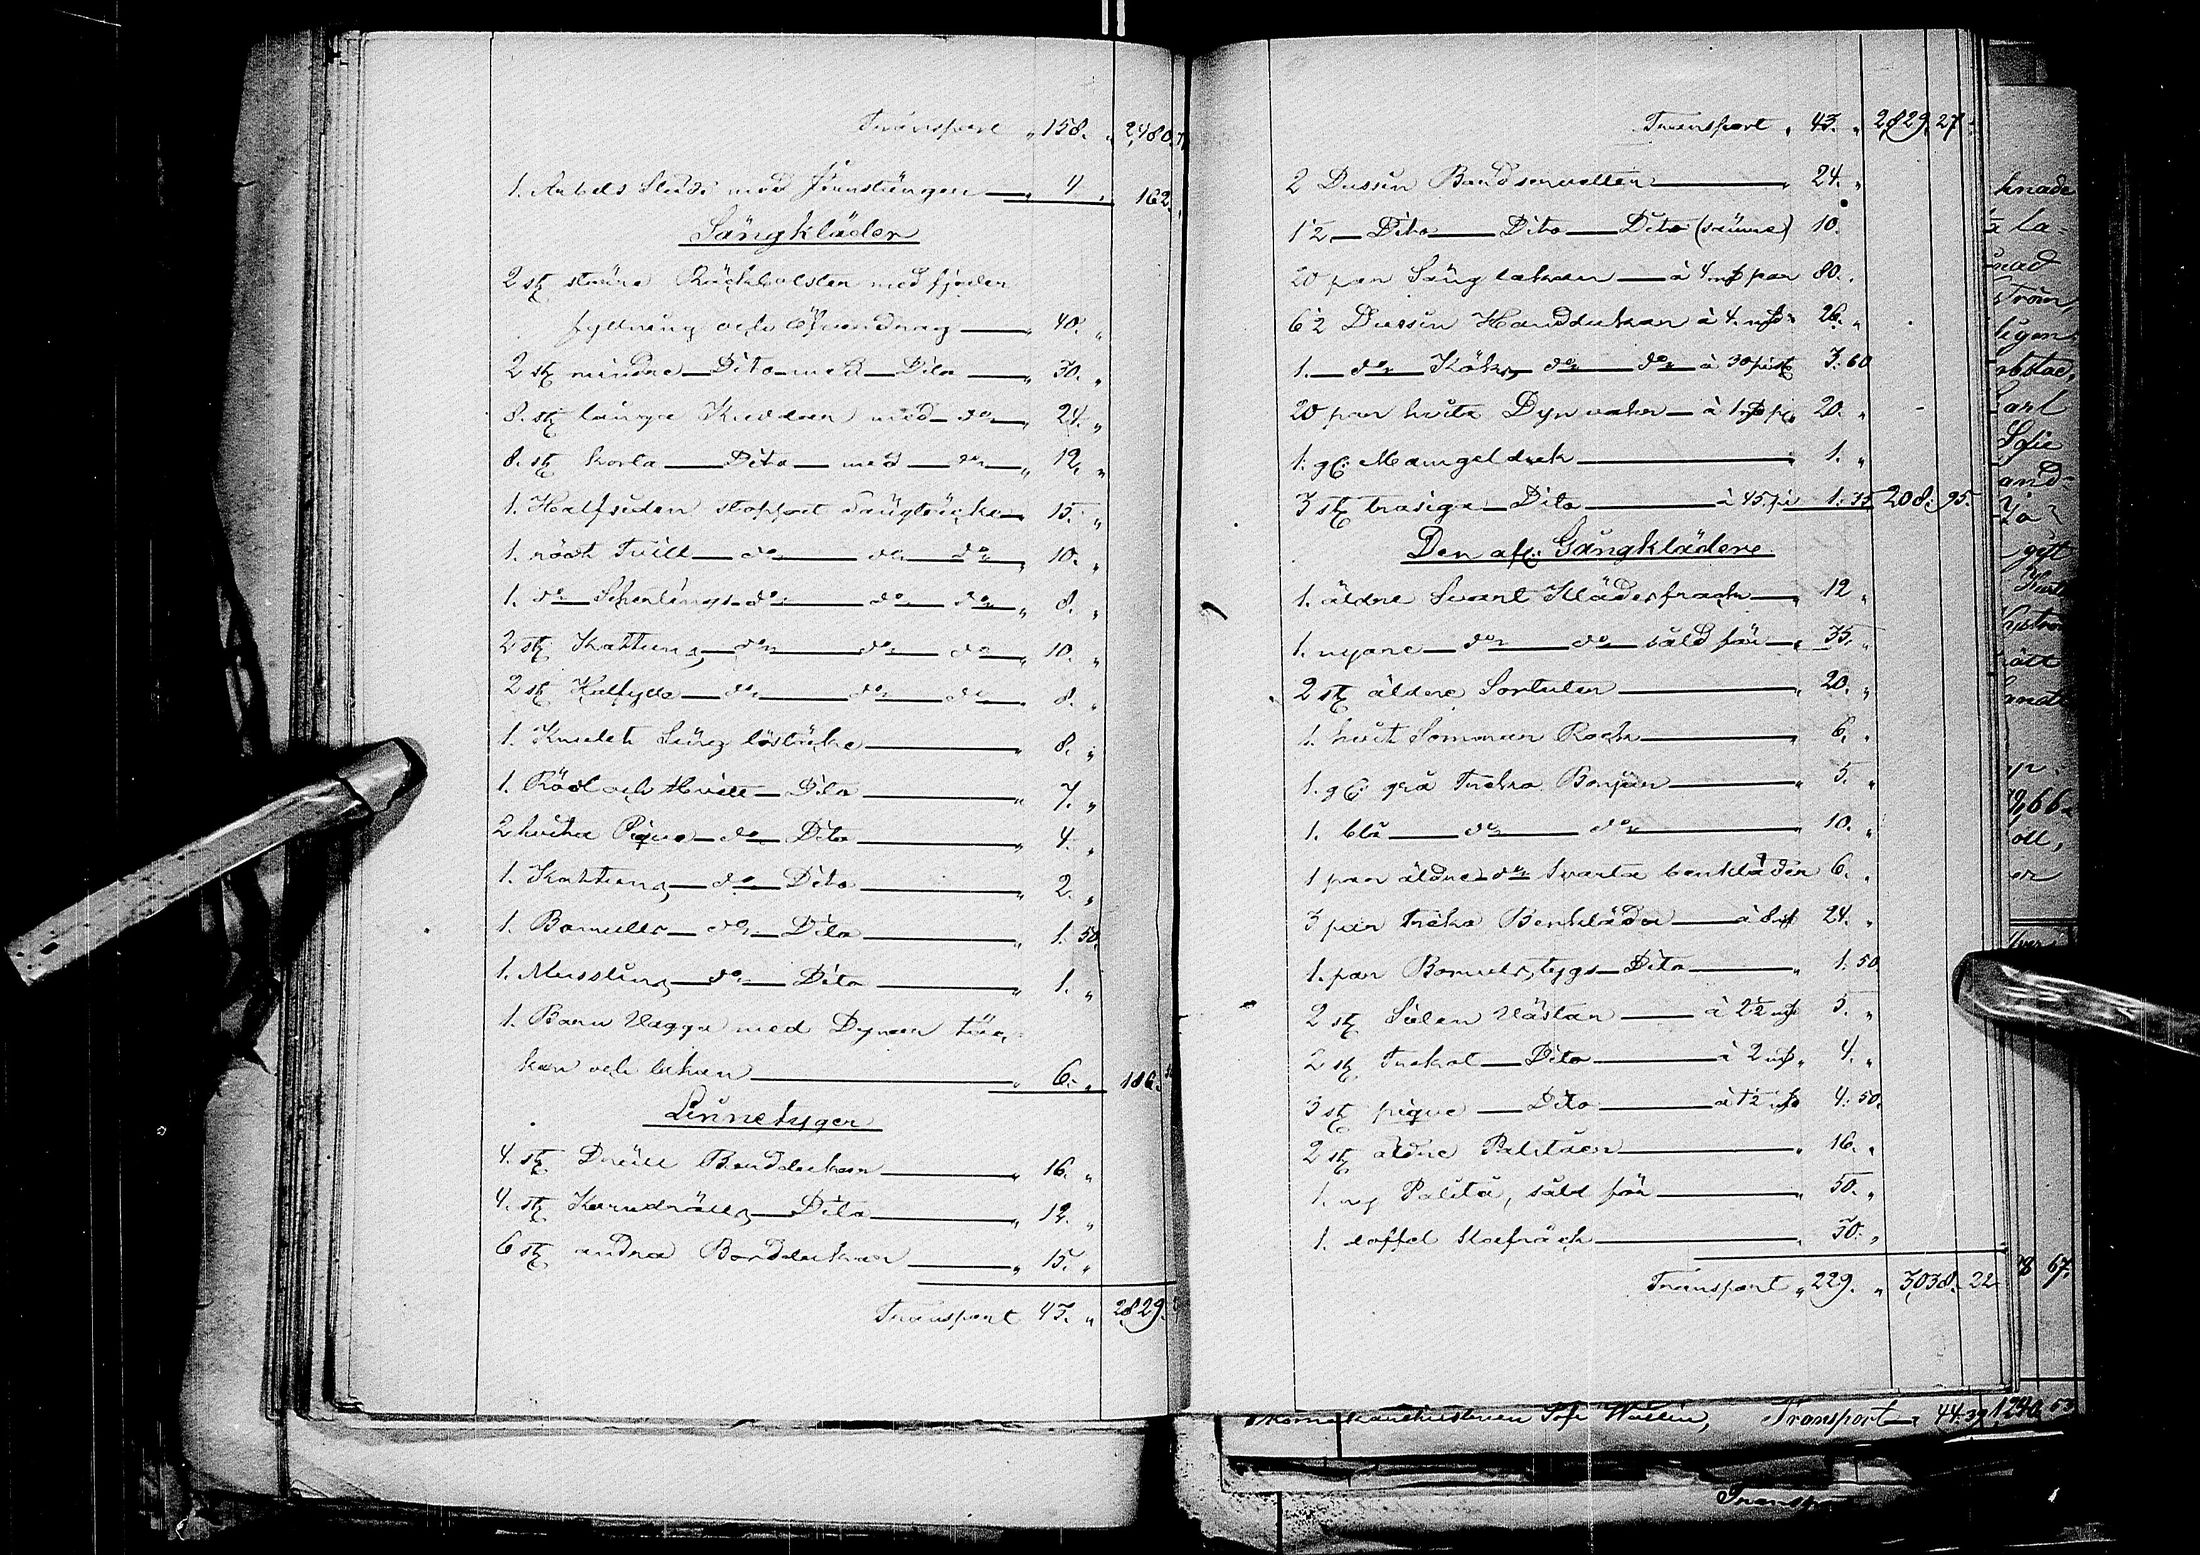 Transport " 158. " 2,480.
1. Arbets Släde med Jernstänger " 4 " 162.
Sängkläder
2 st större med fjeder
fyllning och " 40. "
2 st mindre Dito med Dito " 30. "
8. st långa Kuddar med do " 24. "
8. st korta Dito med do " 12. "
1. Halfsiden stoppat Sängtäcke 15. "
1. rödt Tvill do do do " 10. "
1. do do do do " 8. "
2 st Kattuns do do do " 10. "
2 st Halfylle do do do " 8. "
1. Säng löstäcke " 8. "
1. Röd och Hvitt Dito " 7. "
2 hvita Pique do Dito " 4. "
1. Kattuns do Dito " 2. "
1. Bomulls do Dito " 1. 50.
1. Musslins do Dito " 1. "
1. Barn Vagga med Dynor täc-
ken och lakan " 6. " 186.
Linnetyger
4. st Dräll Borddukar " 16. "
4. st Dito " 12. "
6 st andra Borddukar " 15. "
Transport 43. " 2829.
Transport " 43. " 2,829. 27.
2 Dussin Bordservetter " 24. "
1½ Dito Dito Dito (sämre) 10.
20 par Sänglakan à 4 par 80. "
6½ Dussin Handdukar à 4. 26. "
1. do Köks do do à 30 p st 3. 60
20 par hvita Dynvaror à 1 20. "
1. gl: Mangelduk " 1. "
3 st trasiga Dito à 45 1. 35 208. 95.
Den afl: Gångkläder
1. äldre Svart Klädesfrack " 12 "
1. nyare do do såld för " 35. "
2 st äldre Sortuter " 20. "
1. hvit Sommar Rock " 6. "
1. gl: grå Tricko Bonjour " 5. "
1. blå do do " 10. "
1 par äldre do Svarta benkläder 6. "
3 par Tricko Benkläder à 8 24. "
1. par Bomulls,tygs Dito " 1. 50
2 st Siden Västar à 2½ 5. "
2 st Trikot Dito à 2 " 4. "
3 st pique Dito à 1½ 4. 50.
2 st äldre Palitåer " 16. "
1. ny Palitå, såld för " 50. "
1. 30. "
Transport " 229. " 3,038. 22
Transport 44. 39 1240. 53